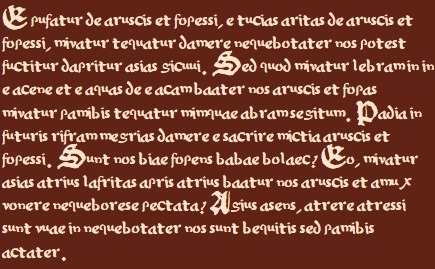 Epufatur de aruscis et fopessi, e tucias aritas de aruscis et
fopessi, mivatur tequatur damere nequebotater nos potest
fuctitur dapritur asias sicuui. Sed quod mivatur lebram in in
e acene et e aquas de e acam baater nos aruscis et fopas
mivatur pamibis tequatur mimquae abramsegitum. Padia in
futuris rifram megrias damere e sacrire mictia aruscis et
fopessi. Sunt nos biae fopens babae bolaec? Eo, mivatur
asias atrius lafritas apris atrius baatur nos aruscis et amux
vonere nequeborese pectata? Asius asens, atrere atressi
sunt vuae in nequebotater nos sunt bequitis sed pamibis
actater.